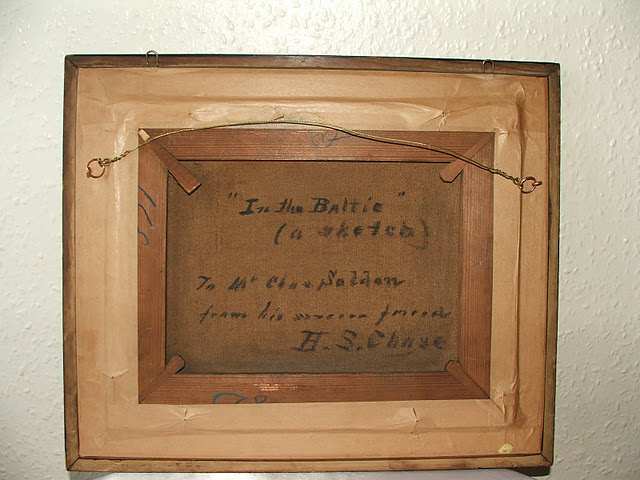 "In the Baltic"
(a sketch)
To Mr Chas. Soldan
from his sincere friend
H. S. Chase